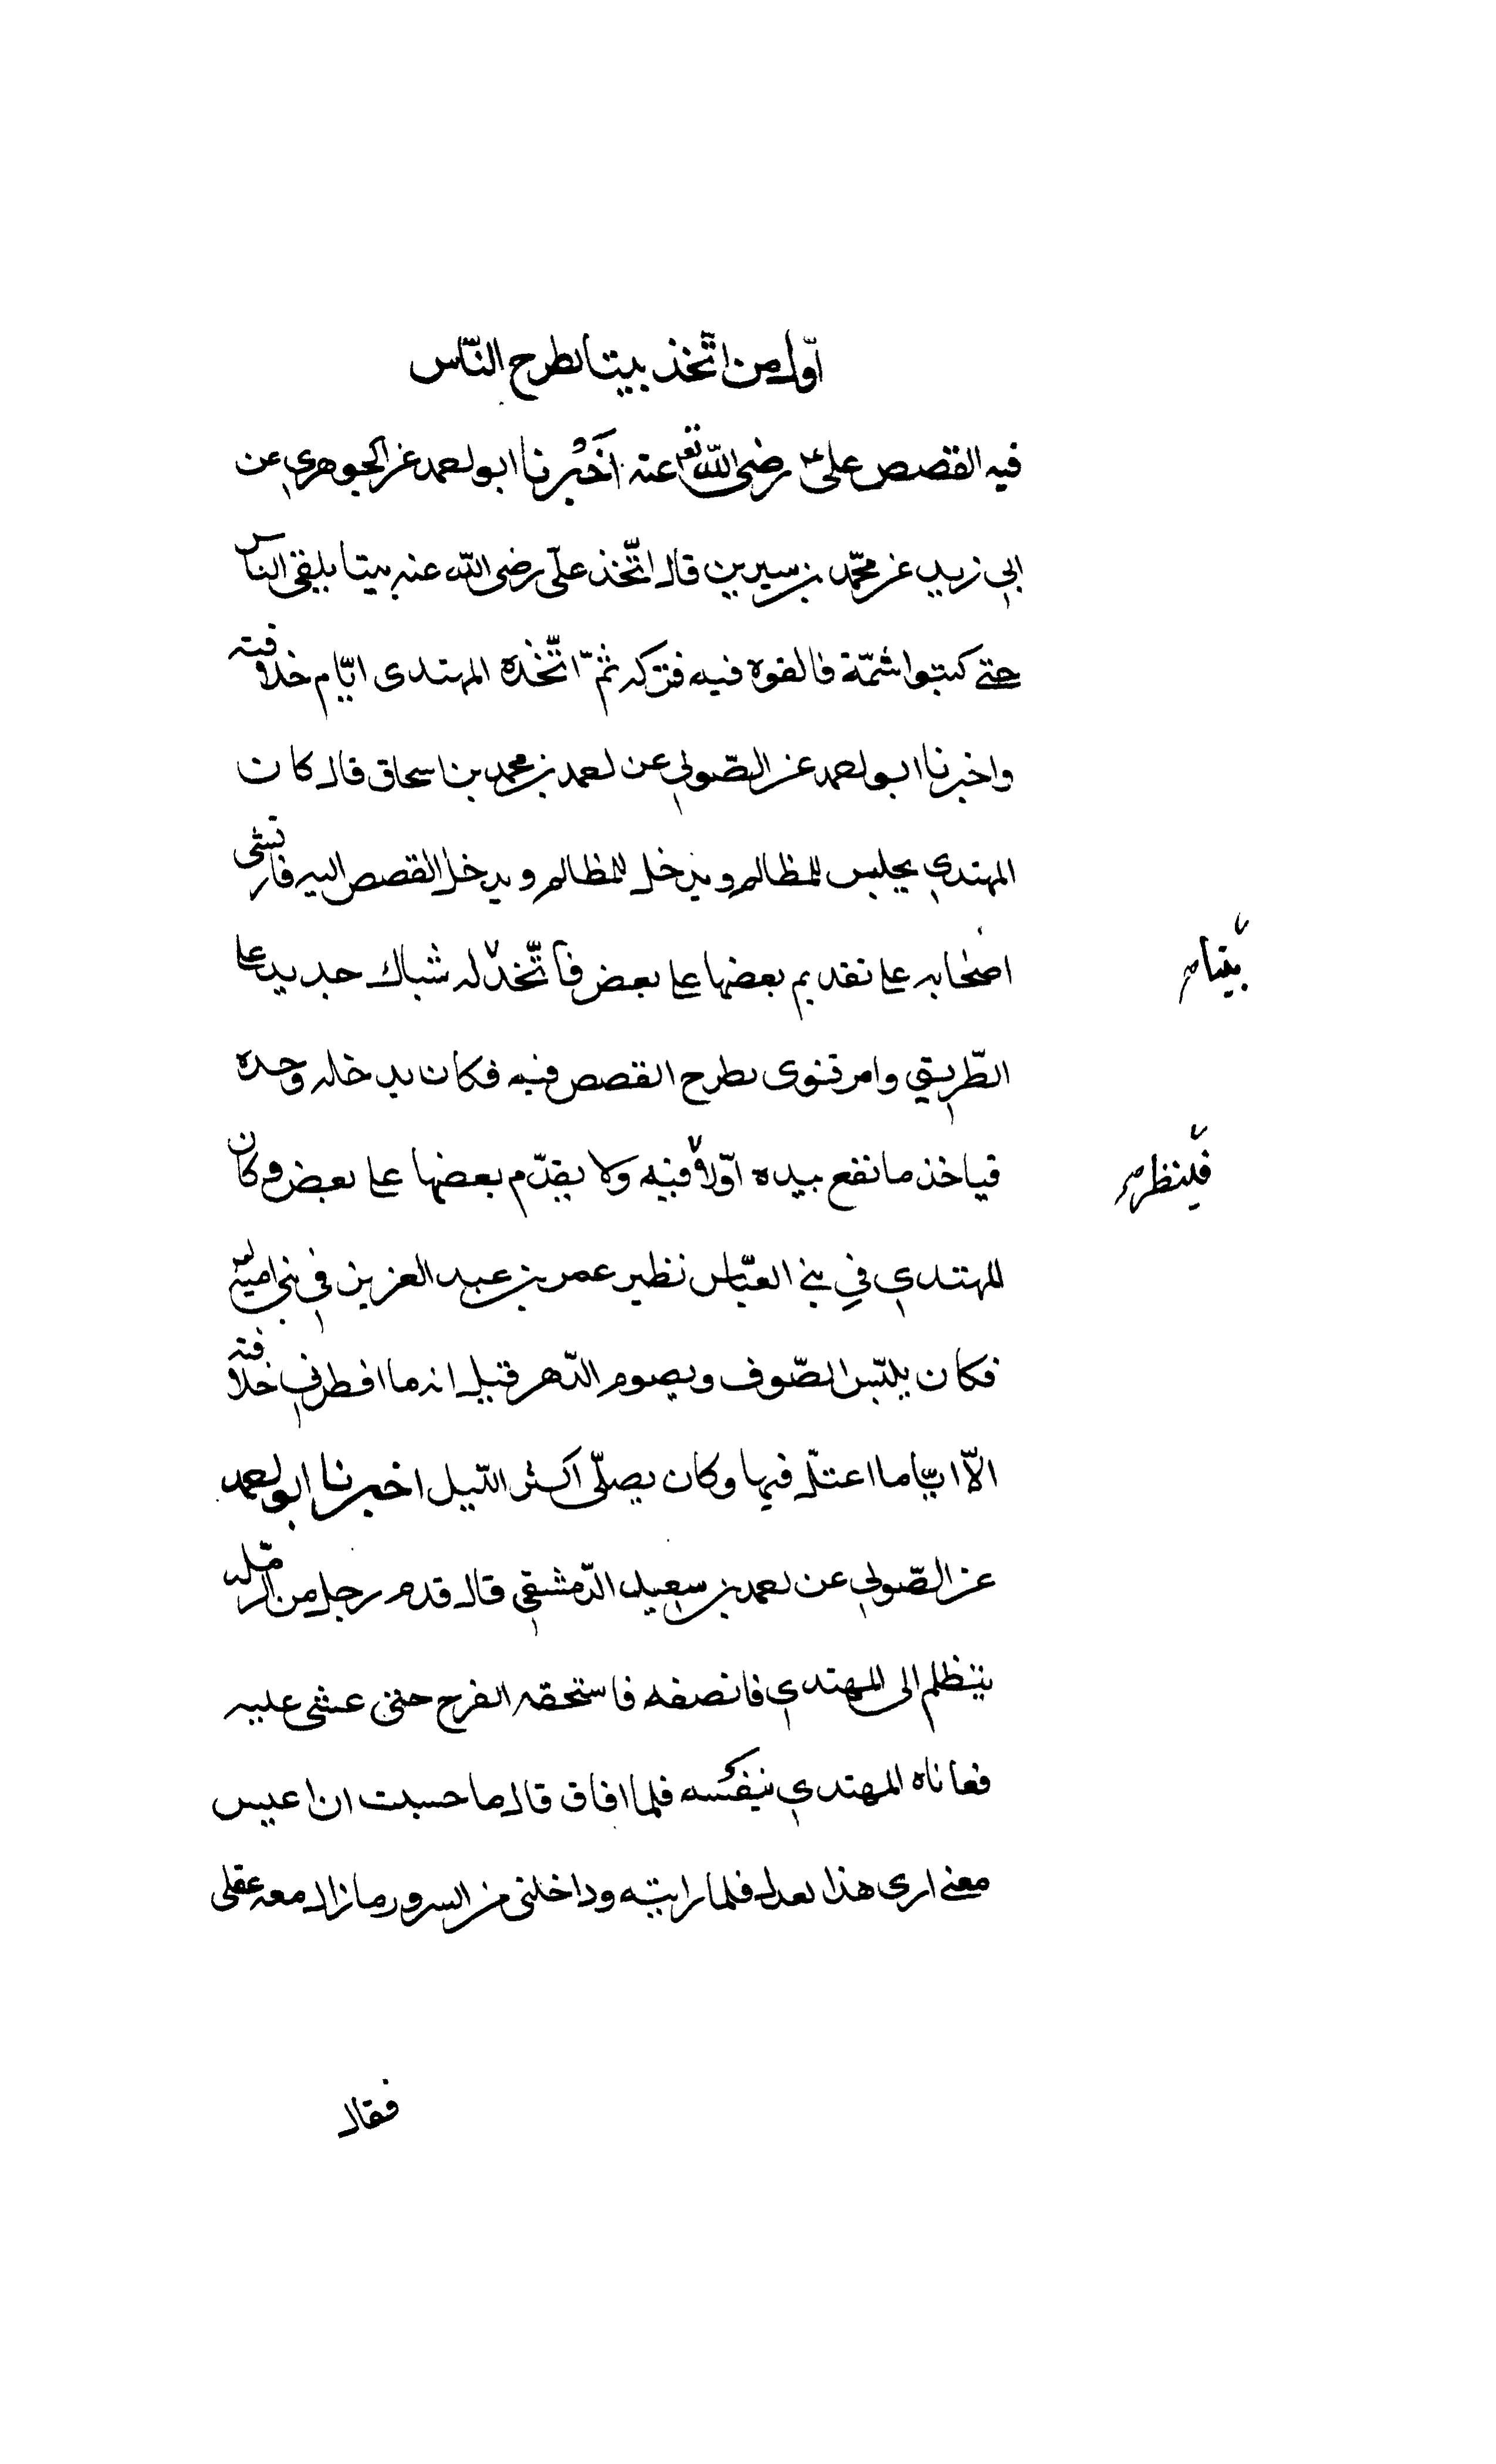 اوّل من اتّخذ بيتا يطرح النّاس
فيه القصص علىّ رضى اللّه تعـ عنه أخبرنا ابو احمد عن الجوهري عن
ابي زيد عن محمّد بن سيرين قال اتّخذ علىّ رضى اللّه عنه بيتا يلقى الناس
حتى كتبوا شمّة فالقوه فيه فتركه ثمّ اتّخذه المهتدى ايّام خلافته
واخبرنا ابو احمد عن الصّولي عن احمد بن محمد بن اسحاق قال كان
المهتدي يجلس للمظالم ويدخل للمظالم ويدخل القصص اليه فارتشى
اصحابه على تقديم بعضها على بعض فاتّخذ له شباك حديد على
الطّريق وامر فنودى يطرح القصص فيه فكان يدخله وحده
فياخذ ما تقع بيده اوّلا فيه ولا يقدّم بعضها على بعض وكان
المهتدي في بني العبّاس نظير عمر بن عبد العزيز في بني اميّة
فكان يلبس الصّوف ويصوم الدّهر قيل انه ما افطر في خلافته
الاّ ايّاما اعتلّ فيها وكان يصلّى اكثر اللّيل اخبرنا ابو احمد
عن الصّولي عن احمد بن سعيد الدّمشقي قال قدم رجل من الرّملة
يتظلم الى المهتدي فانصفه فاستحقه الفرح حتى غشى عليه
فعاناه المهتدي بنفسه فلما افاق قال ما حسبت ان اعيس
معنى ارى هذا لعدل فلما رايته وداخلنى من السرور ما زال معه عقلى
بيتا
فينظر
فقال